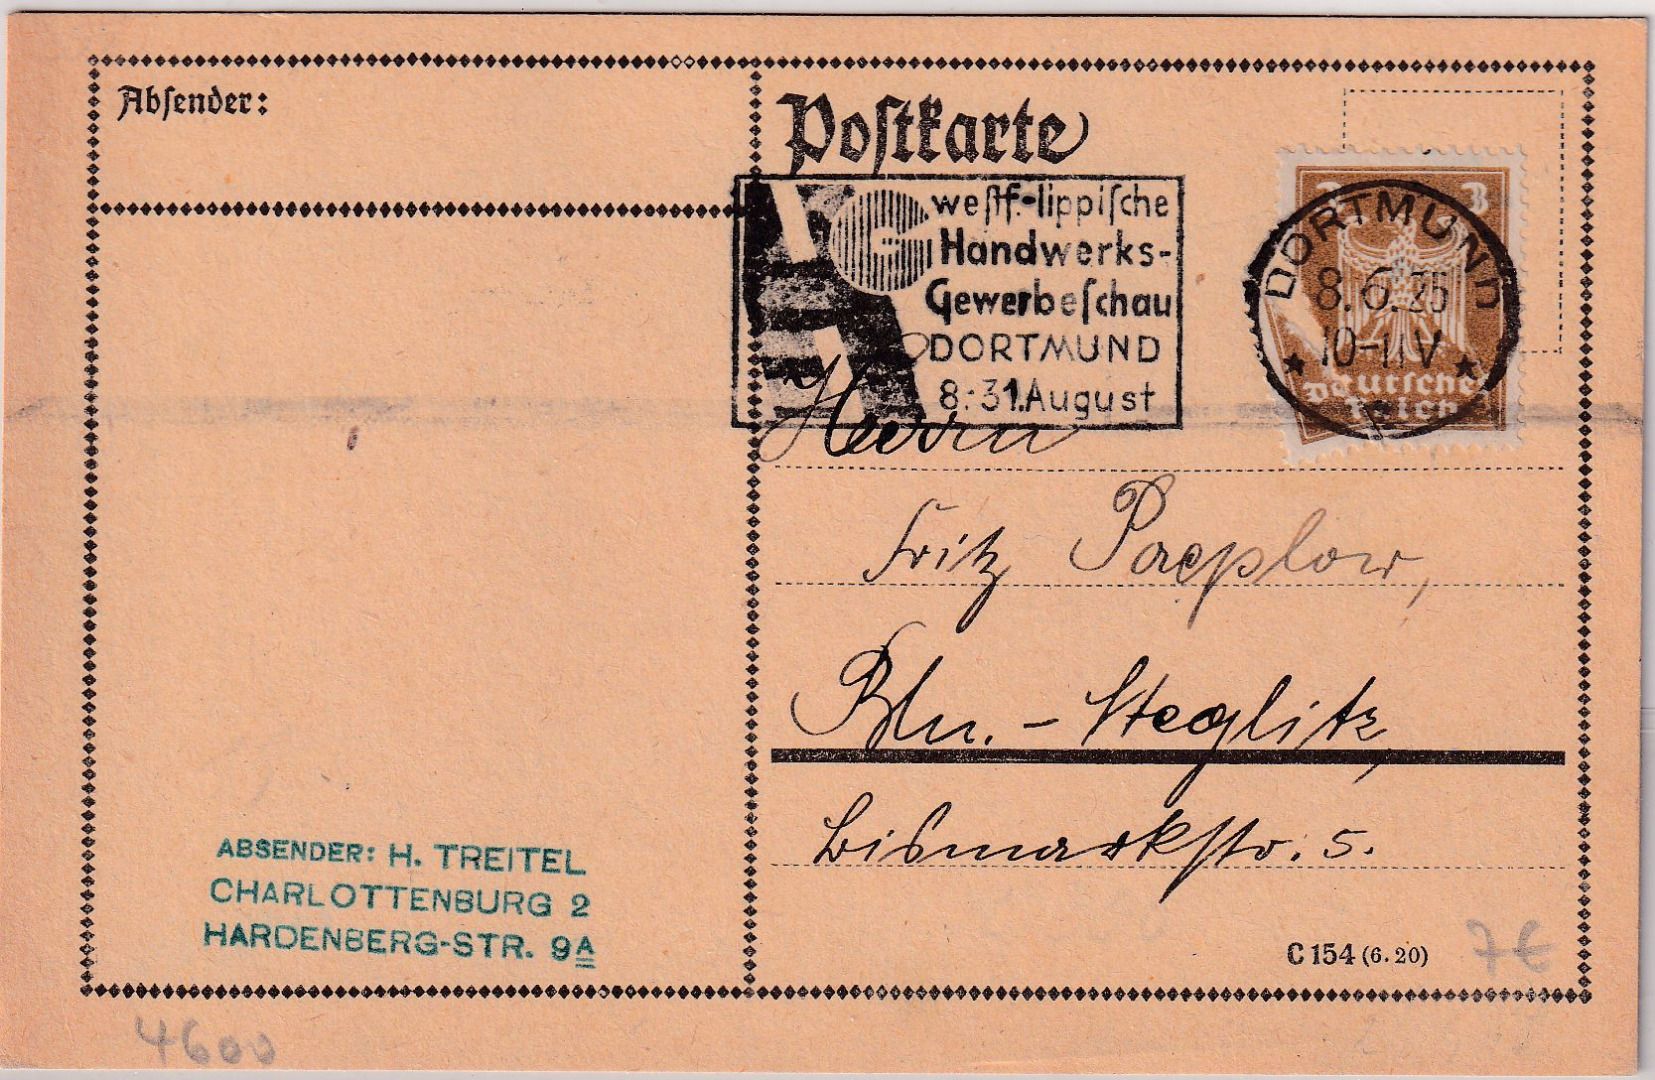 Absender:
Postkarte
westf.-lippische
Handwerks-
Gewerbeschau
DORTMUND
8.-31. August
3
DORTMUND
8.6.25
10-11 V
Deutsches
Reich
Herrn
Fritz Paeplow,
Bln. - Steglitz,
Bismarkstr. 5.
ABSENDER: H. TREITEL
CHARLOTTENBURG 2
HARDENBERG-STR. 9A
C 154 (6.20)
7€
4600